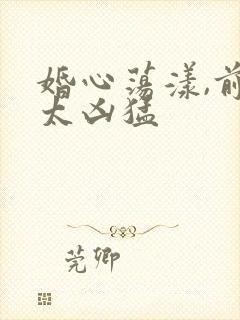 婚心荡漾,前
太凶猛
莞卿